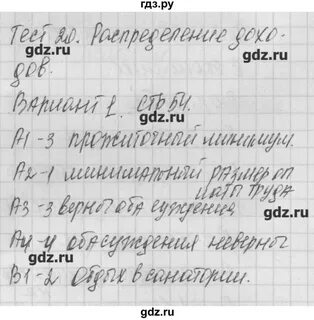 гдз.ру
Тест 20. Распределение дохо-
gdz.ru
дов.
Вариант 1. стр 54.
gdz.ru
А1-3 прожиточный минимум.
А2-1 минимальный размер оп
gdz.ru
латы труда
А3-3 верног оба суждения
gdz.ru
А4-4 оба суждения неверног
gdz.ru
В1-2 Отдых в санатории.
gdz.ru